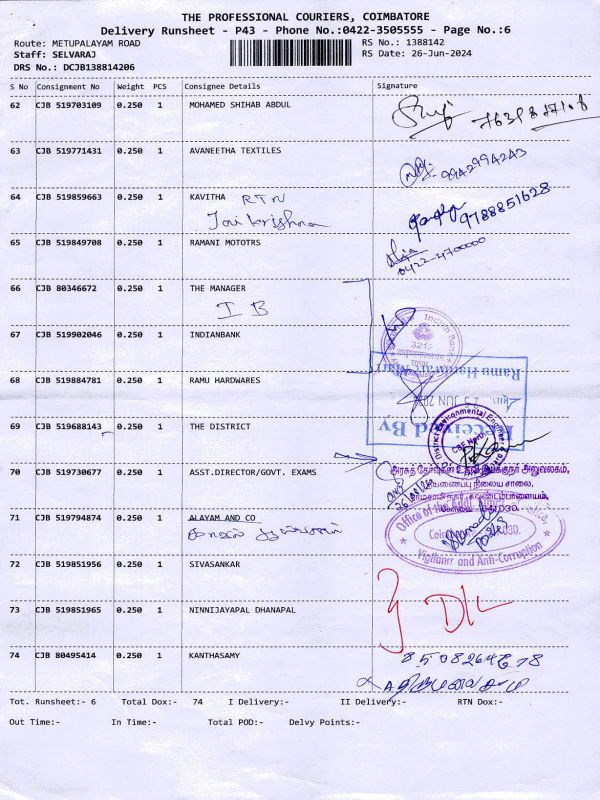 THE PROFESSIONAL COURIERS, COIMBATORE
Delivery Runsheet - P43 - Phone No.:0422-3505555 - Page No.:6
Route: METUPALAYAM ROAD RS No.: 1388142
Staff: SELVARAJ RS Date: 26-Jun-2024
DRS No.: DCJB138814206
S No Consignment No Weight PCS Consignee Details Signature
62 CJB 519703109 0.250 1 MOHAMED SHIHAB ABDUL
63 CJB 519771431 0.250 1 AVANEETHA TEXTILES
9942994243
64 CJB 519859663 0.250 1 KAVITHA RTN
Jai krishna
9788851628
65 CJB 519849708 0.250 1 RAMANI MOTOTRS
0422-4700000
66 CJB 80346672 0.250 1 THE MANAGER
I B
67 CJB 519902046 0.250 1 INDIANBANK
Indian Bank
68 CJB 519884781 0.250 1 RAMU HARDWARES
Ramu Hardware Mart
JUN
Received By
69 CJB 519688143 0.250 1 THE DISTRICT
District Environmental Engineer
70 CJB 519730677 0.250 1 ASST.DIRECTOR/GOVT. EXAMS
அரசுத் தேர்வுகள் உதவி இயக்குநர் அலுவலகம்,
சாலை,
71 CJB 519794874 0.250 1 ALAYAM AND CO
Office of the Addl
Vigilance and Anti-Corruption
72 CJB 519851956 0.250 1 SIVASANKAR
73 CJB 519851965 0.250 1 NINNIJAYAPAL DHANAPAL
74 CJB 80495414 0.250 1 KANTHASAMY
Tot. Runsheet:- 6 Total Dox:- 74 I Delivery:- II Delivery:- RTN Dox:-
Out Time:- In Time:- Total POD:- Delvy Points:-